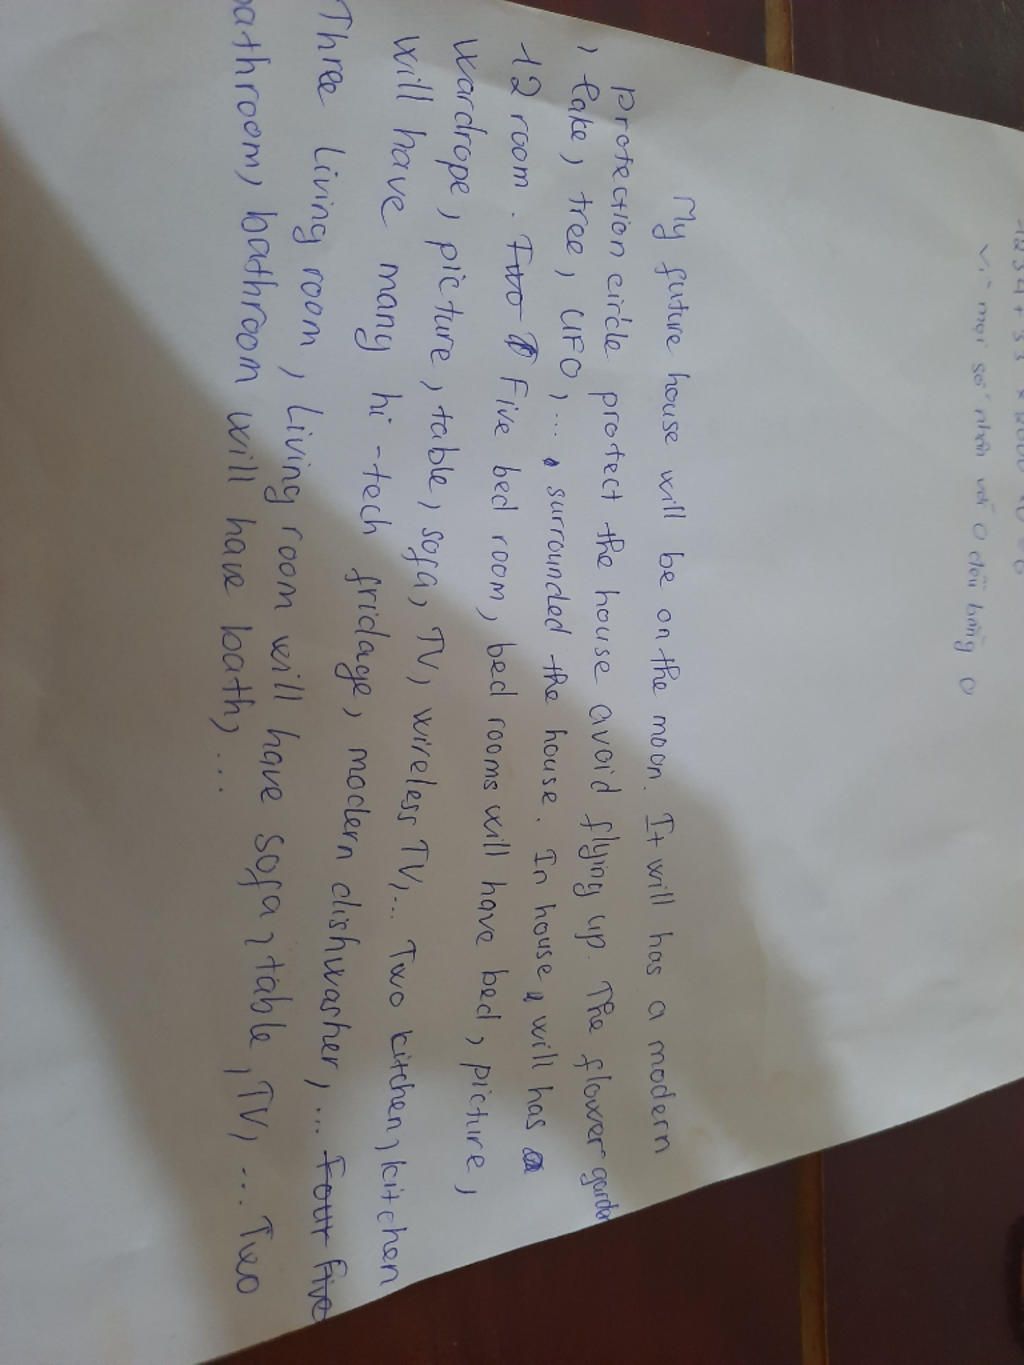 My future house will be on the moon. It will has a modern
protection circle protect the house avoid flying up. The flower garden
, lake, tree, UFO,... surrounded the house. In house, will has
12 room. Two Five bed room, bed rooms will have bed, picture,
wardrope, picture, table, sofa, TV, wireless TV,... Two kitchen, kitchen
will have many hi-tech fridage, modern dishwasher,... Four Five
Three Living room, Living room will have sofa, table, TV,... Two
bathroom, bathroom will have bath,...
vì mọi số nhân với 0 đều bằng 0